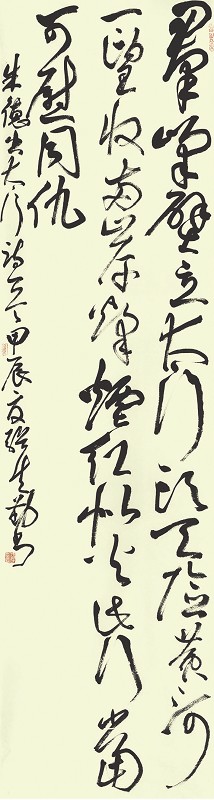 羣峰壁立太行头天险黄河
一望收两岸烽煙红似火此行當
可慰同仇
朱德出太行诗甲辰夏生勤书